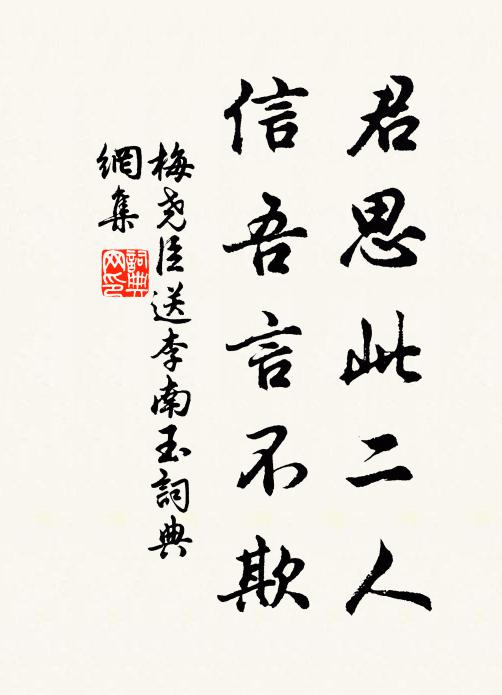 君思此二人
信吾言不欺
梅堯臣送李南玉詞典
網集
詞典
网印